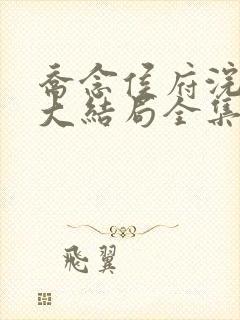 喬念侯府浣
大結局全集
飛翼